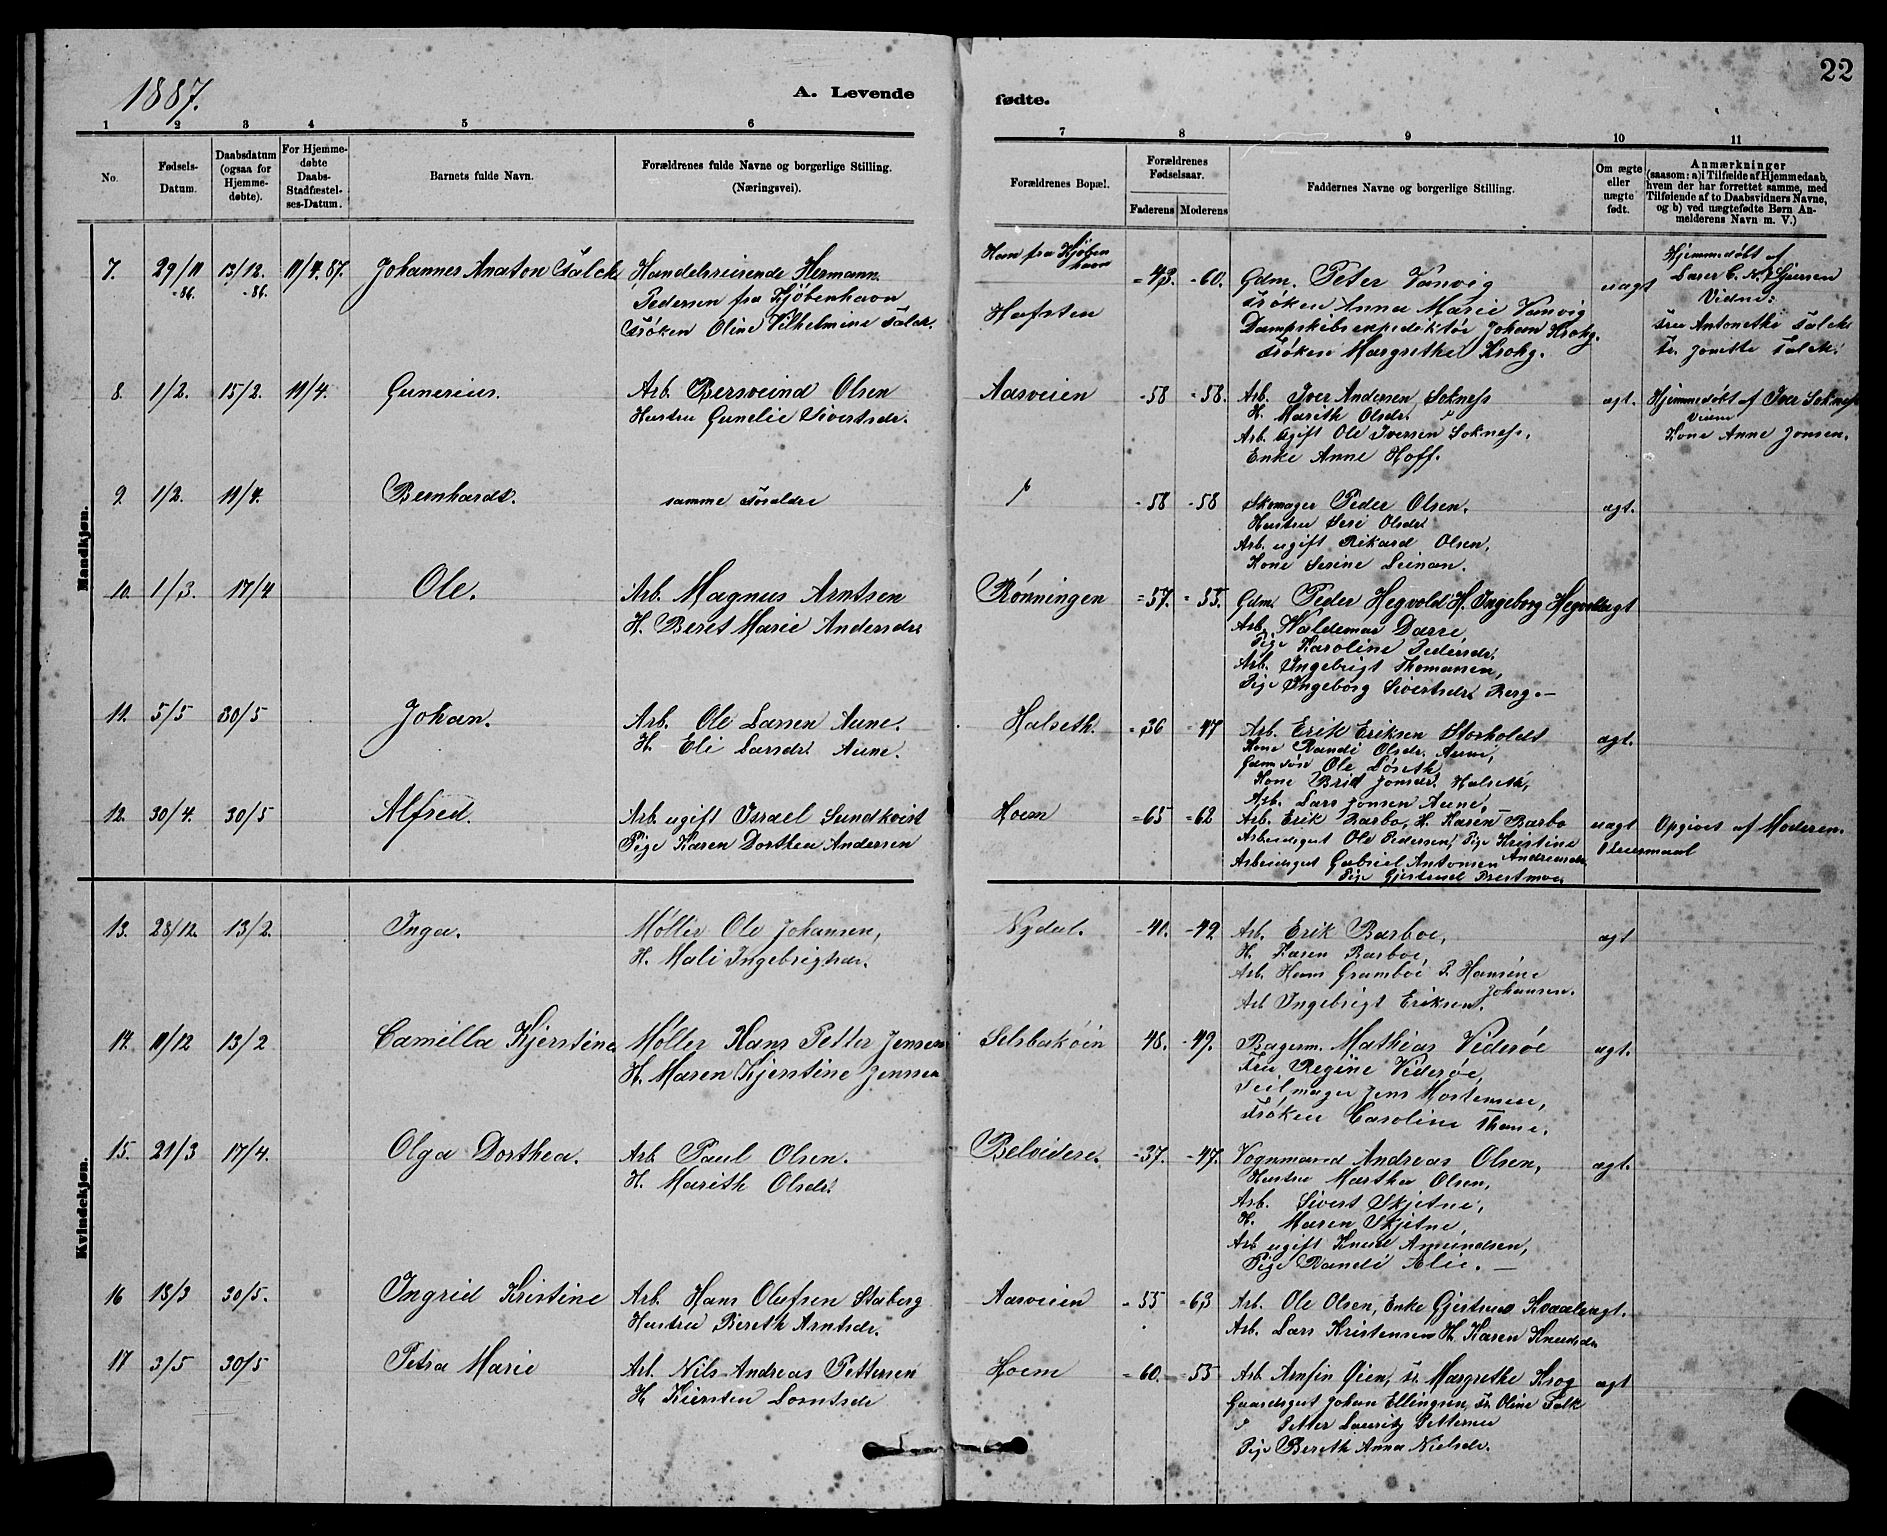 1887.
A. Levende
fødte.
22
1 2 3 4 5 6 7 8 9 10 11
No.
Fødsels-
Datum.
Daabsdatum
(ogsaa for
Hjemme-
døbte).
For Hjemme-
døbte
Daabs-
Stadfæstel-
ses-Datum.
Barnets fulde Navn.
Forældrenes fulde Navne og borgerlige Stilling.
(Næringsvei).
Forældrenes Bopæl.
Forældrenes
Fødselsaar.
Faderens Moderens
Faddernes Navne og borgerlige Stilling.
Om ægte
eller
uægte
født.
Anmærkninger
(saasom: a) i Tilfælde af Hjemmedaab,
hvem der har forrettet samme, med
Tilføiende af to Daabsvidners Navne,
og b) ved uægtefødte Børn An-
melderens Navn m. V.)
Mandkjøn.
7. 29/11 -86. 13/12. -86. 11/4. 87. Johannes Anaton Falck
Handelsreisende Hermann
Pedersen fra Kjøbenhavn
Frøken Oline Vilhelmine Falck.
Han fra Kjøben
havn
Hafsten
=43. -60.
Gdm. Peter Vanvig
Frøken Anna Marie Vanvig
Dampskibsexpeditør Johan Krohg.
Frøken Margrethe Krohg.
uægt
Hjemmedøbt af
Lærer
Vidne:
Fru Antonethe Falck
Fr. Falck.
8. 1/2. 15/2. 11/4. Gunerius.
Arb. Bersveind Olsen
Hustru Gunelie Sivertsdr.
Aasveien -58 -58.
Arb. Iver Andersen Sokness
H. Marith Olsdr.
Arb. ugift Ole Iversen Sokness,
Enke Anne Hoff.
ægt.
Hjemmedøbt af Iver Sokness
Vidne
Kone Anne Jonsen.
9 1/2. 11/4. Bernhardt.
samme Forældre
-58 -58
Skomager Peder Olsen,
Hustru Seri Olsdr.
Arb. ugift Rikard Olsen,
Kone Serine Leinan.
ægt.
10. 1/3. 17/4 Ole.
Arb. Magnus Arntsen
H. Beret Marie Andersdr.
Rønningen =57. -55.
Gdm. Peder Hegvold H. Ingeborg Hegvold
Arb. Valdemar Darre,
Pige Karoline Pedersdr.
Arb. Ingebrigt Thomassen,
Pige Ingeborg Sivertsdr. Berg. —
ægt
11. 5/5 30/5 Johan.
Arb. Ole Larsen Aune.
H. Eli Larsdr. Aune.
Halseth. =36 -47
Arb. Erik Eriksen Storholdt
Kone Randi Olsdr. Aune,
Gdm. Ole Løseth
Kone Brit Jonsdr. Halseth,
Arb. Lars Jonsen Aune,
ægt.
12. 30/4. 30/5 Alfred.
Arb. ugift Israel Sundkvist
Pige Karen Dorthea Andersen
Hoem =65 =62
Arb. Erik Barbo, H. Karen Barbo
Arbeidsgut Ole Pedersen, Pige Kristine
Andreasdr.
Arbeidsgut Gabriel Antonsen
Pige Gjertrud Prestmoe
uægt
Opgivet af Moderen.
Kvindekjøn.
13. 28/12. 13/2. Inga.
Møller Ole Johansen,
H. Mali Ingebrigtsdr.
Nydal. -40. -49.
Arb. Erik Barboe,
H. Karen Barboe,
Arb. Hans Gramboe P. Hansine
Johansen.
Arb Ingebrigt Eriksen,
ægt
14. 11/12 13/2 Camilla Kjerstine
Møller Hans Petter Jensen
H. Maren Kjerstine Jenssen
48. -49.
Bagerm. Mathias Viderøe
Fru Regine Viderøe,
Seilmager Jens Mortensen,
Frøken Caroline Thane.
ægt.
15. 21/3 17/4. Olga Dorthea.
Arb. Paul Olsen.
H. Marith Olsdr.
Belvidere. =37. -47.
Vognmand Andreas Olsen,
Hustru Martha Olsen,
Arb. Sivert Skjetne,
H. Maren Skjetne,
Arb ugift Knud Amundsen,
Pige Randi Alie. —
ægt.
16 18/3 30/5. Ingrid Kristine
Arb. Hans Olufsen Staberg
Hustru Bereth Arntsdr.
Aasveien -55 -63
Arb. Ole Olsen, Enke Gjertrud Kvaal
Arb. Lars Kristensen H. Karen Knudsdr
ægt.
17 3/5 30/5 Petra Marie
Arb. Nils Andreas Pettersen
H Kiersten Lorntsdr
Hoem =60. -55
Arb Arnfin Øien, Fr. Margrethe Krog
Gaardsgut Johan Ellingsen, Fr. Oline Falk
Petter Lauritz Petternu
Pige Bereth Anna Nielsdr.
ægt